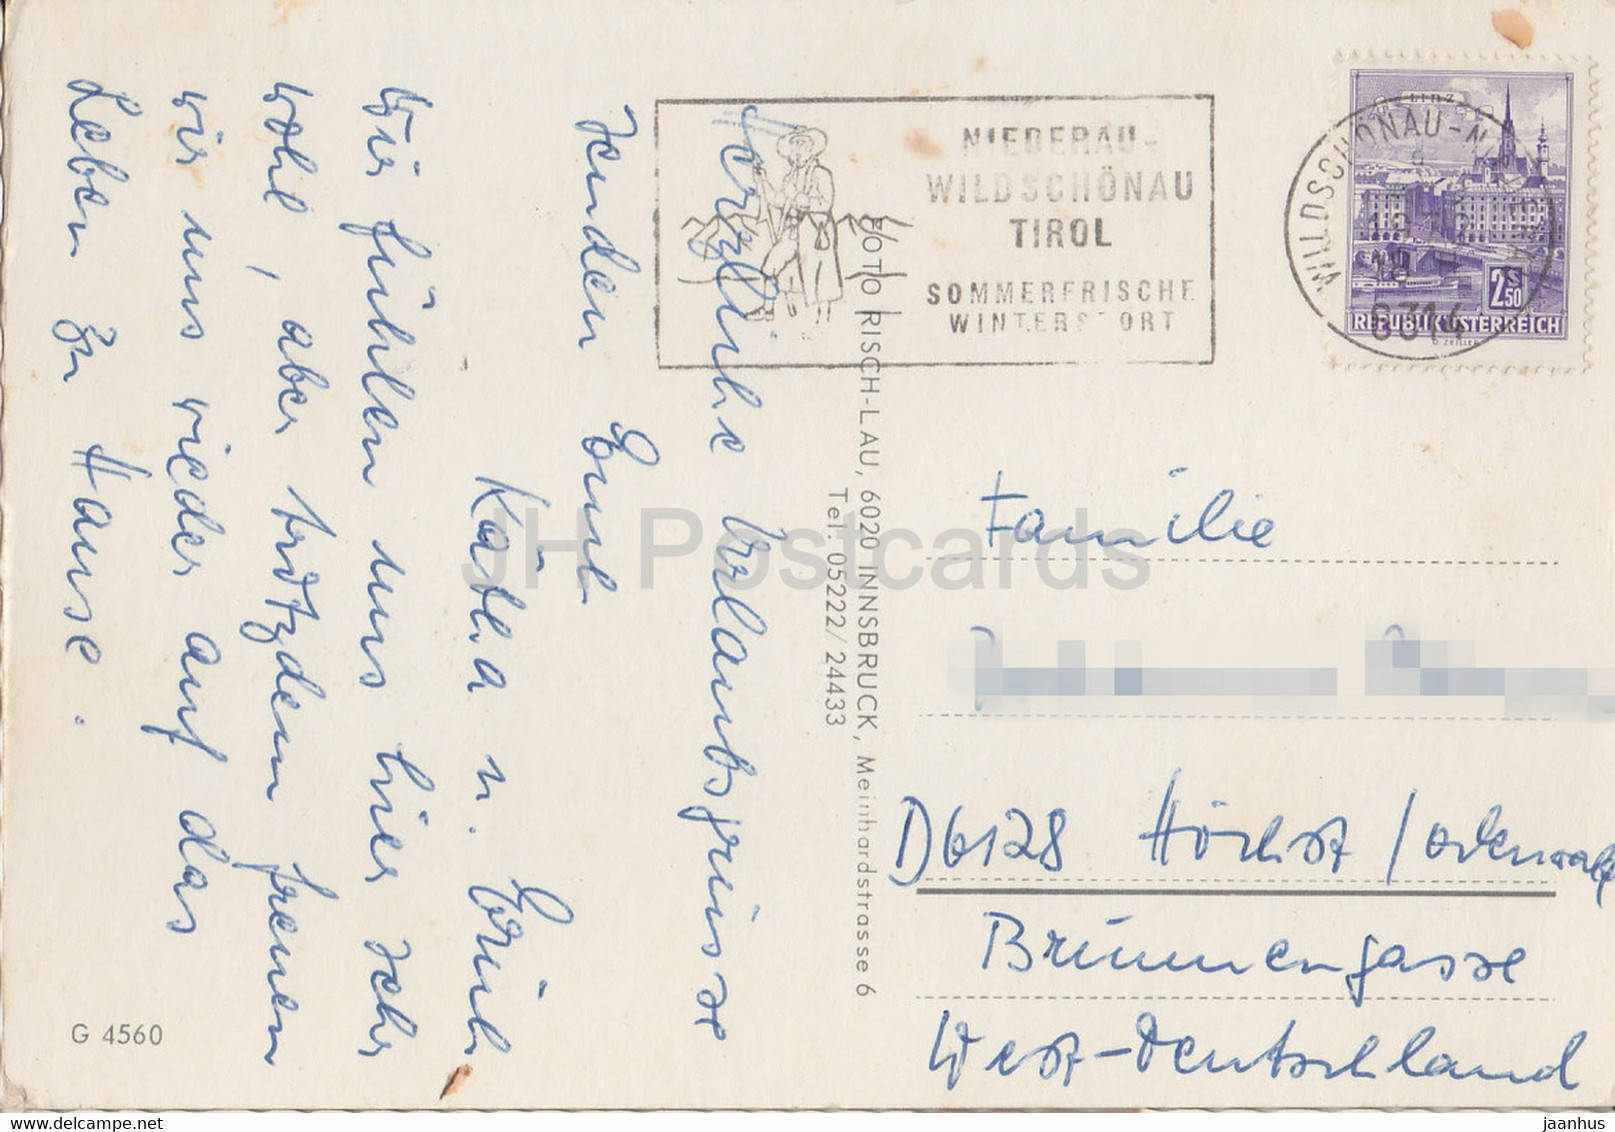 Herzliche Urlaubsgrüsse
senden Euch
Kätha u. Erich
Wir fühlen uns hier sehr
wohl, aber trotzdem freuen
wir uns wieder auf das
Leben zu Hause.
G 4560
FOTO RISCH-LAU, 6020 INNSBRUCK, Meinhardstrasse 6
Tel. 05222/24433
NIEDERAU-
WILDSCHÖNAU
TIROL
SOMMERFRISCHE
WINTERSPORT
LINZ
2.50 S
REPUBLIK ÖSTERREICH
WILDSCHÖNAU-NIEDERAU
6314
Familie
D6128 Höchst/Odenwald
Brunnengasse
West-Deutschland
JH Postcards
jaanhus